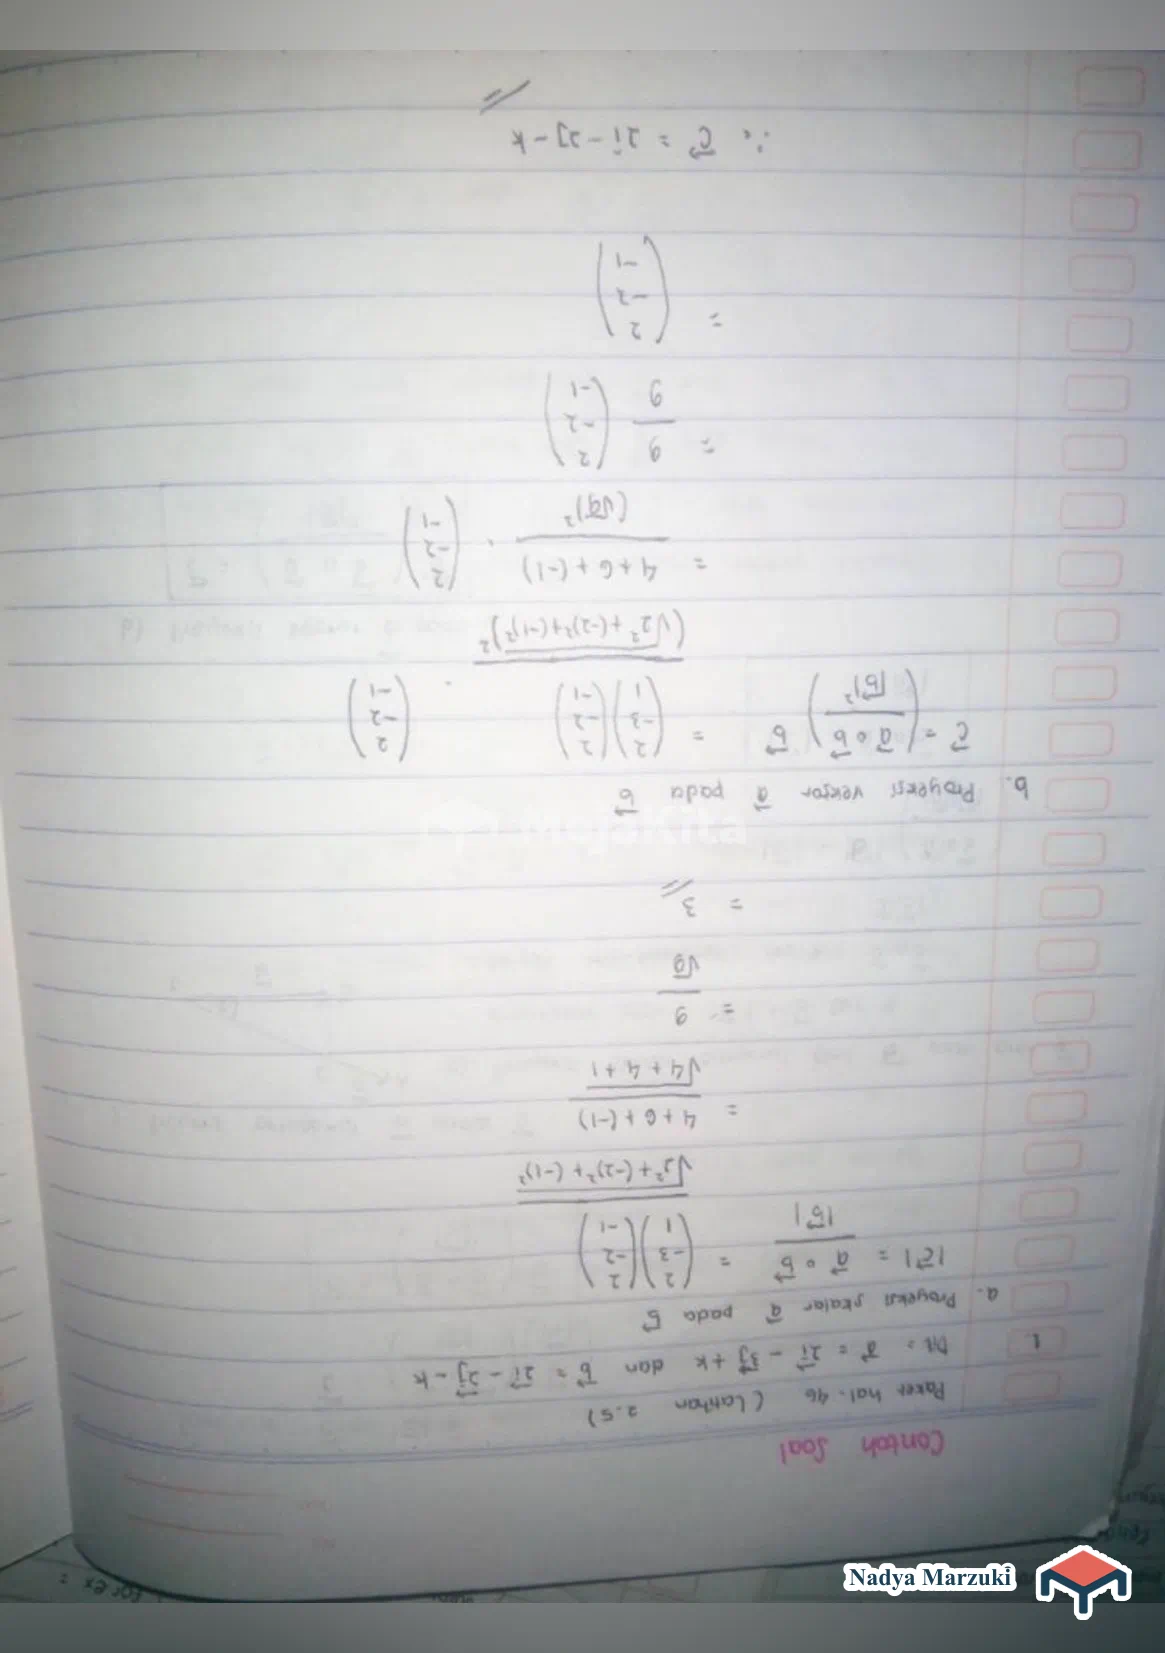 Contoh Soal
Paket hal. 46 (Latihan 2.5)
1. Dik = a⃗ = 2i⃗ - 3j⃗ + k dan b⃗ = 2i⃗ - 2j⃗ - k
a. Proyeksi skalar a⃗ pada b⃗
|c⃗| = a⃗ ∘ b⃗ / |b⃗| = (2 -3 1) (2 -2 -1) / √2² + (-2)² + (-1)²
= 4 + 6 + (-1) / √4 + 4 + 1
= 9 / √9
= 3
b. Proyeksi vektor a⃗ pada b⃗
c⃗ = (a⃗ ∘ b⃗ / |b⃗|²) b⃗ = (2 -3 1) (2 -2 -1) / (√2² + (-2)² + (-1)²)² . (2 -2 -1)
= 4 + 6 + (-1) / (√9)² . (2 -2 -1)
= 9 / 9 (2 -2 -1)
= (2 -2 -1)
∴ c⃗ = 2i - 2j - k
Nadya Marzuki